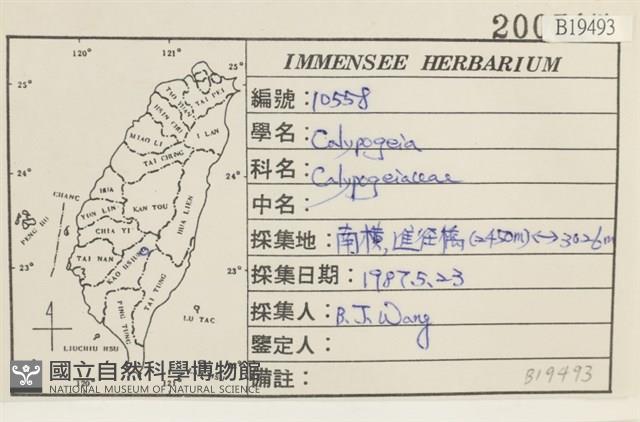 B19493
IMMENSEE HERBARIUM
編號：10558
學名：Calypogeia
科名：Calypogeiaceae
中名：
採集地：南橫,進徑橋(2450m)↔3026m
採集日期：1987.5.23
採集人：B.J.Wang
鑒定人：
備註：
B19493
120°
121°
25°
25°
TAO YUAN
TAI PEI
HSIN CHU
I LAN
MIAO LI
TAI CHUNG
24°
24°
HUA
CHANG
NAN TOU
HUA LIEN
YUN LIN
PENG HU
CHIA YI
TAI NAN
KAO HSIUNG
23°
23°
TAI TUNG
PING TUNG
LU TAO
LIUCHIU HSU
120°
121°
國立自然科學博物館
NATIONAL MUSEUM OF NATURAL SCIENCE